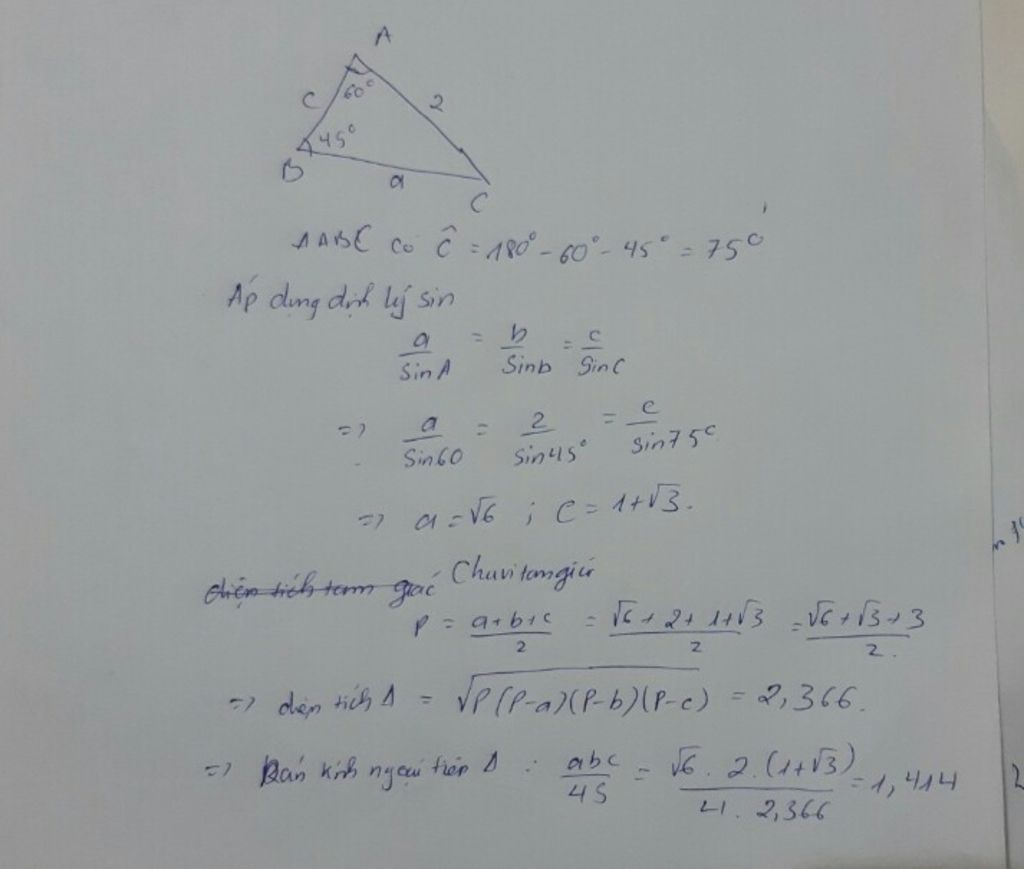 A
60°
c
2
45°
B
a
C
ΔABC có Ĉ = 180° - 60° - 45° = 75°
Áp dụng định lý sin
a/sinA = b/sinb = c/sinC
=> a/sin60 = 2/sin45° = c/sin75°
=> a = √6 ; c = 1+√3.
diện tích tam giác Chu vi tam giác
P = a+b+c/2 = √6+2+1+√3/2 = √6+√3+3/2.
=> diện tích Δ = √P(P-a)(P-b)(P-c) = 2,366.
=> Bán kính ngoại tiếp Δ : abc/4S = √6 . 2 . (1+√3)/4 . 2,366 = 1,414